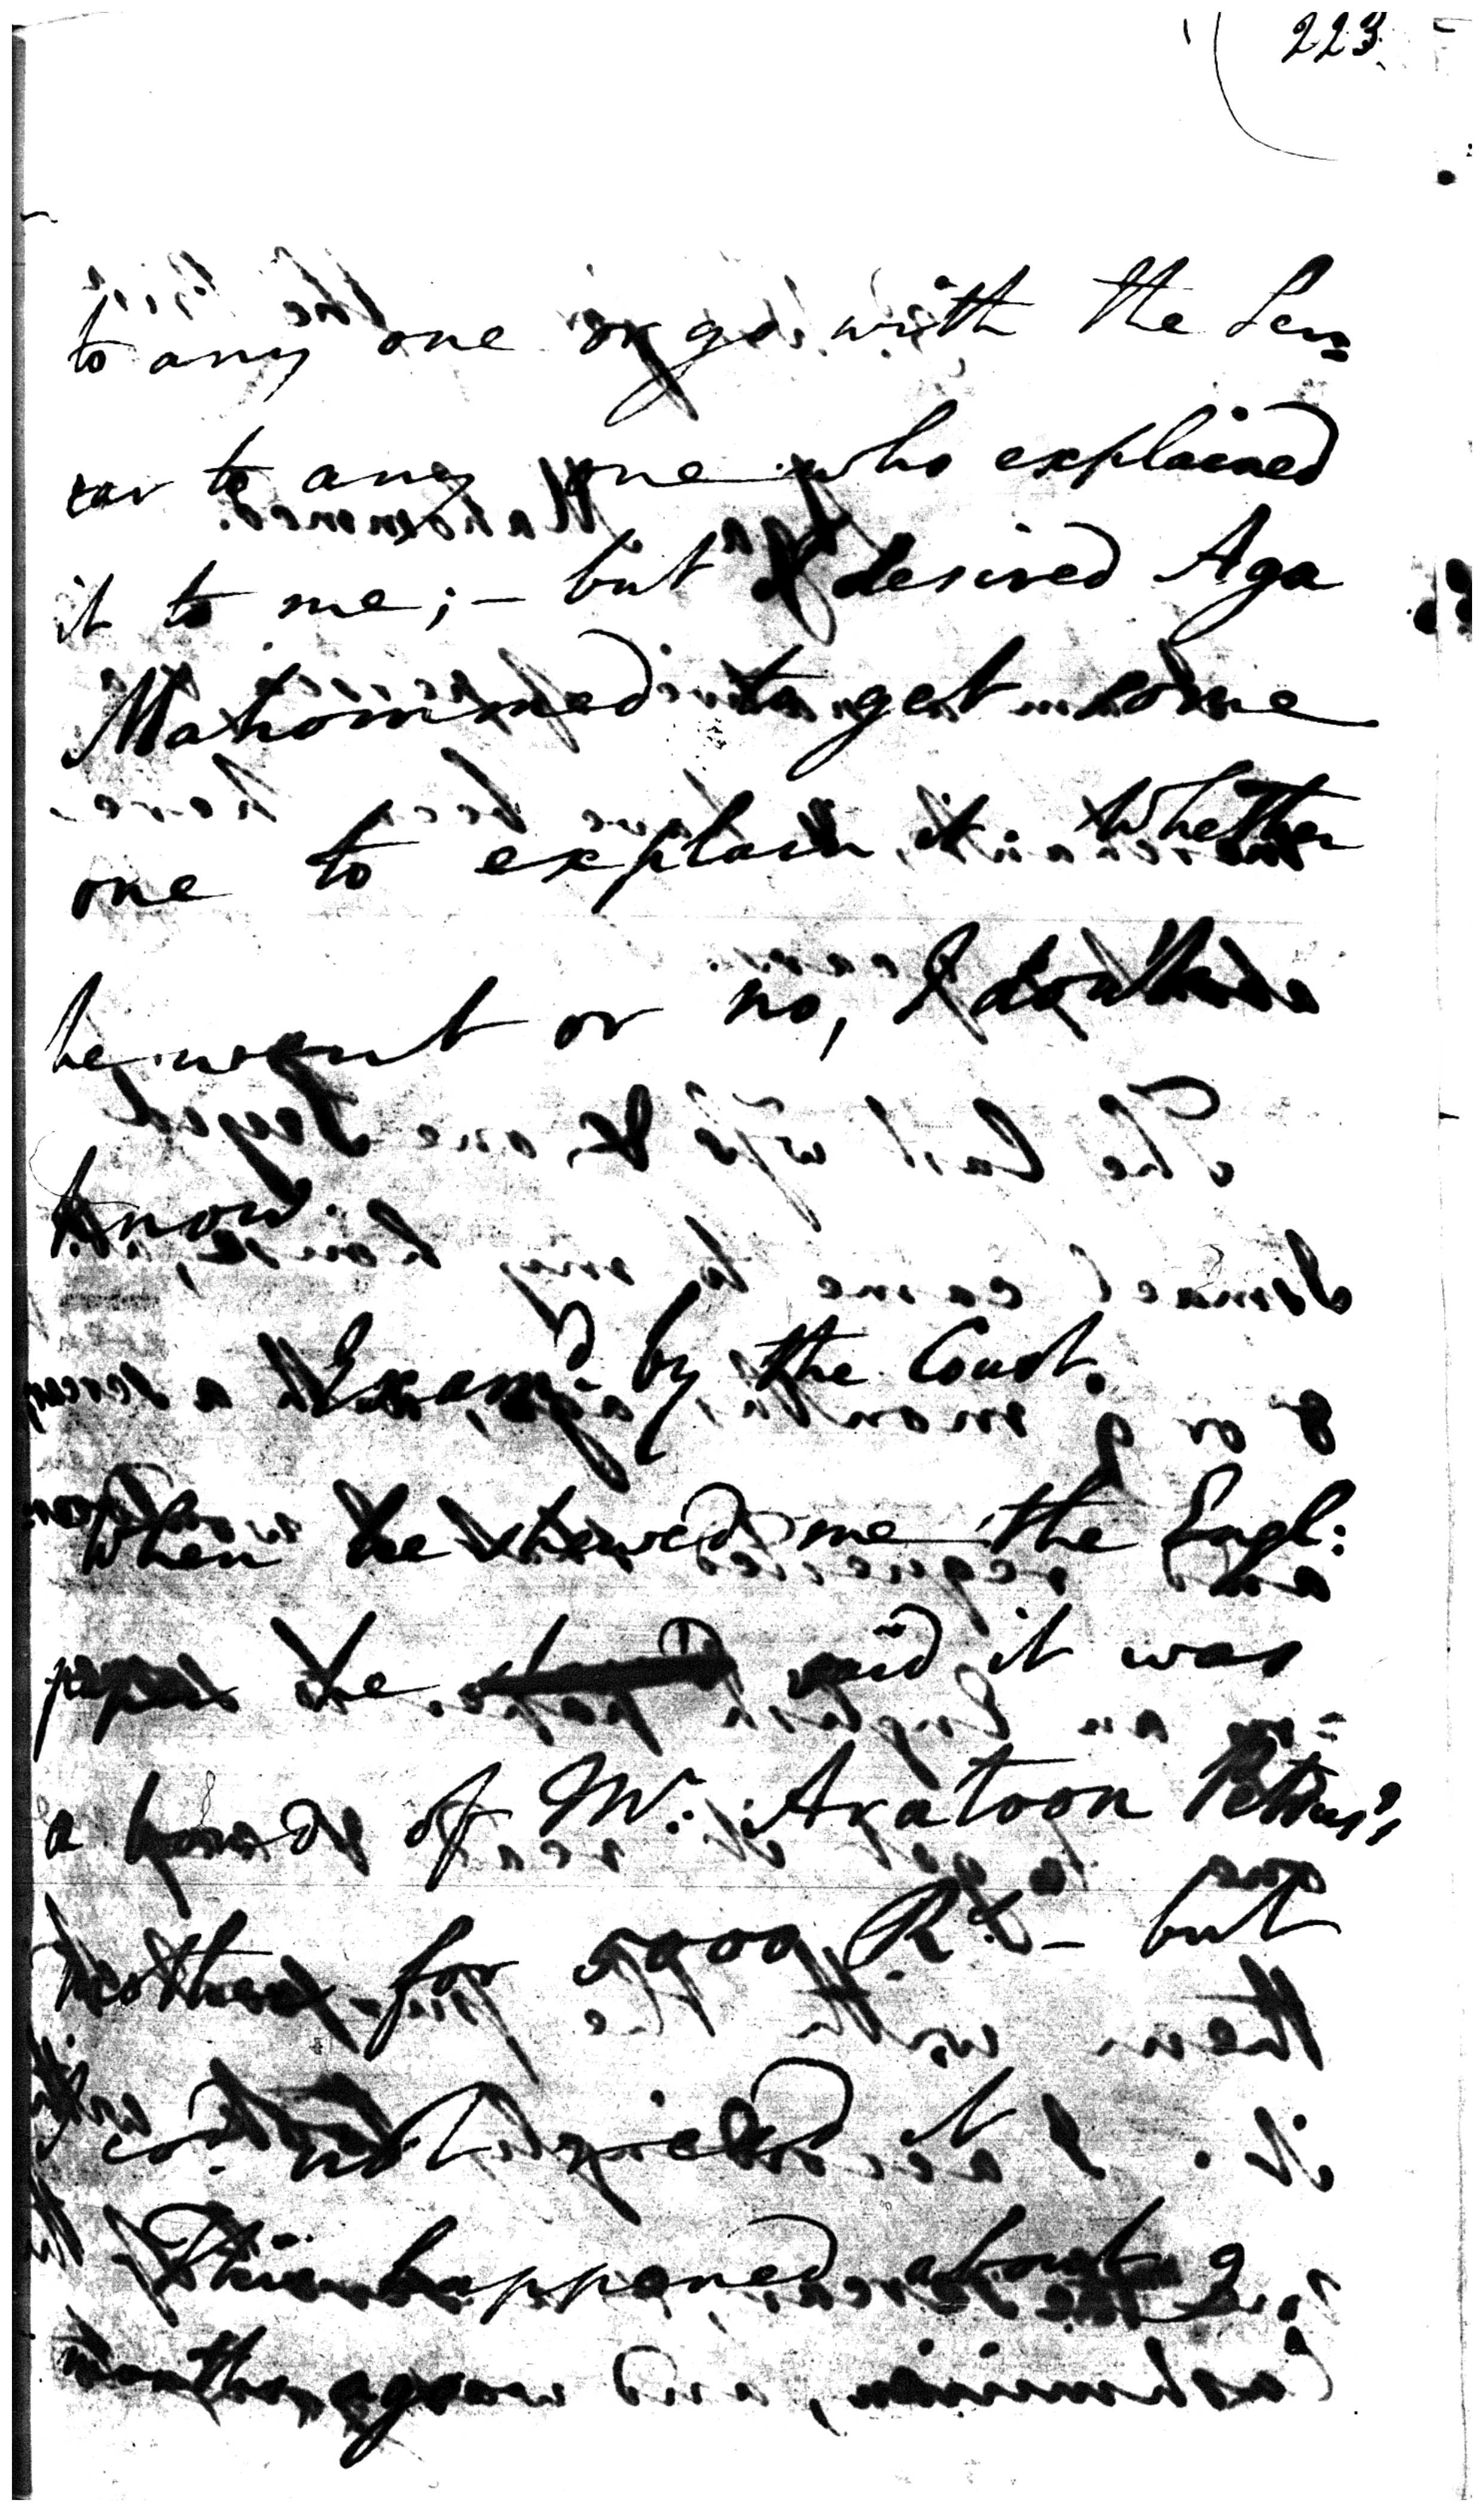 223.
to any one or go with the Ser=
car to any one who explained
it to me; - but I desired Aga
Mahommed to get some
one to explain it. Whether
he went or no, I don't
know.
Exam.d by the Court.
When he shewed me the Engl:
paper he said it was
a bond of Mr. Aratoon Petrus's
mother for 5900 Rs. - but
co.d not read it
This happened about 2
months ago